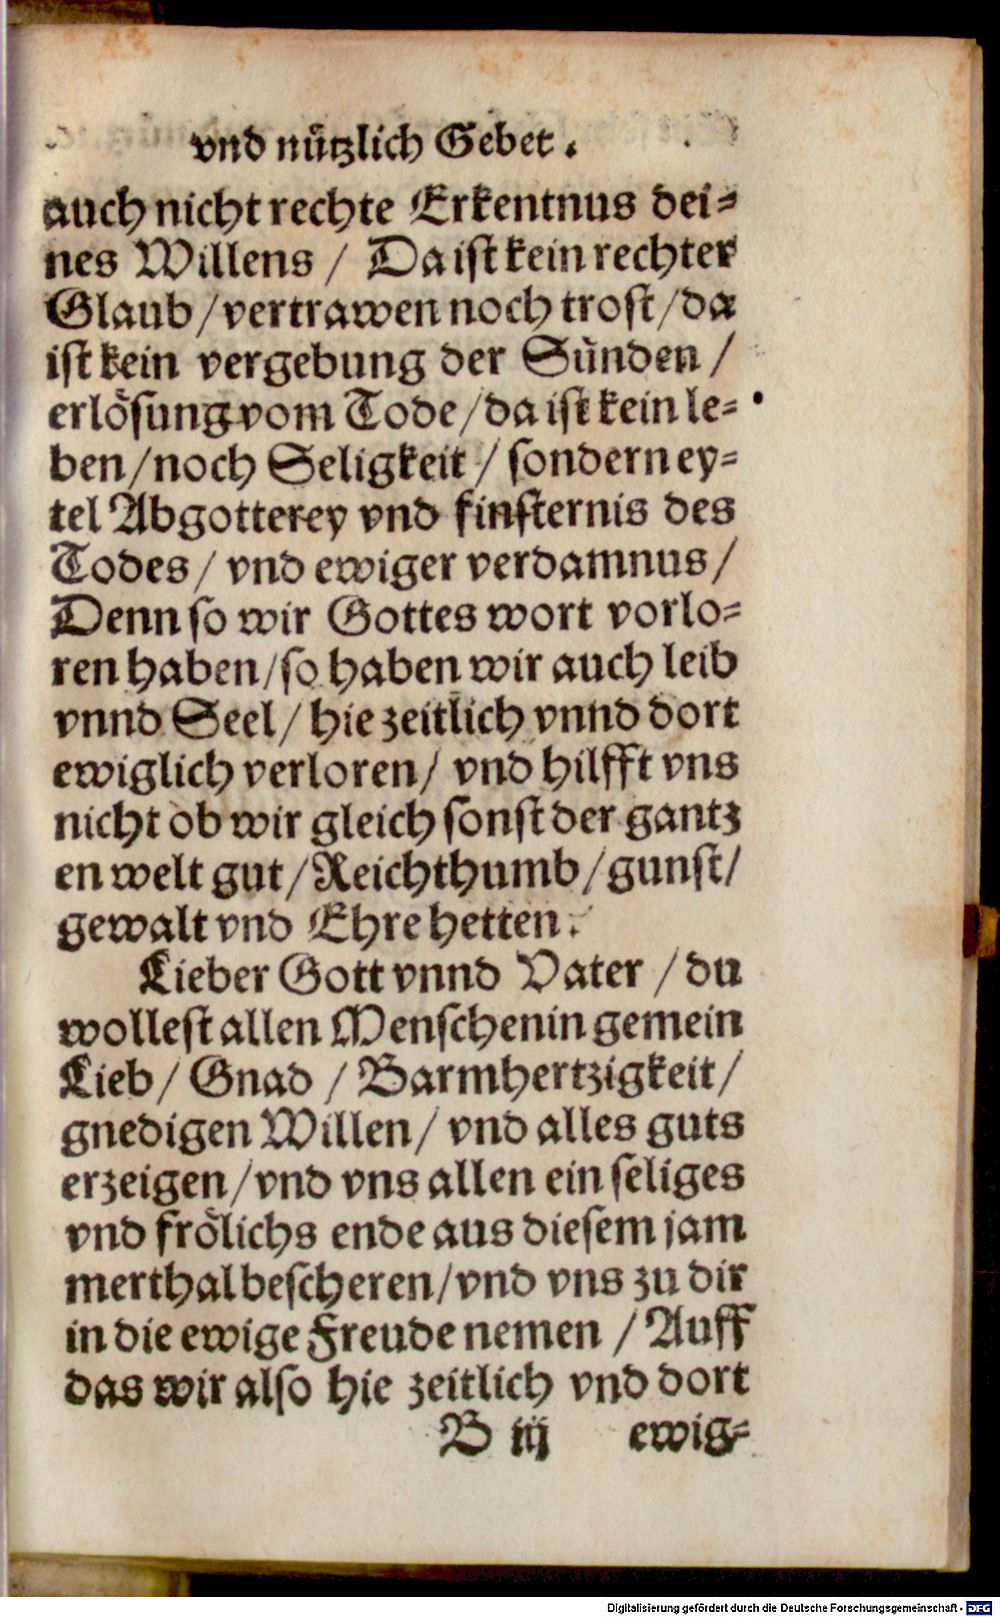 vnd nuͤtzlich Gebet.
auch nicht rechte Erkentnus dei⸗
nes Willens / Da iſt kein rechter
Glaub / vertrawen noch troſt / da
iſt kein vergebung der Suͤnden /
erloͤſung vom Tode / da iſt kein le⸗
ben / noch Seligkeit / ſondern ey⸗
tel Abgotterey vnd finſternis des
Todes / vnd ewiger verdamnus /
Denn ſo wir Gottes wort vorlo⸗
ren haben / ſo haben wir auch leib
vnnd Seel / hie zeitlich vnnd dort
ewiglich verloren / vnd hilfft vns
nicht ob wir gleich ſonſt der gantz
en welt gut / Reichthumb / gunſt /
gewalt vnd Ehre hetten.
Lieber Gott vnnd Vater / du
wolleſt allen Menſchen in gemein
Lieb / Gnad / Barmhertzigkeit /
gnedigen Willen / vnd alles guts
erzeigen / vnd vns allen ein ſeliges
vnd froͤlichs ende aus dieſem jam
merthal beſcheren / vnd vns zu dir
in die ewige Freude nemen / Auff
das wir alſo hie zeitlich vnd dort
B iij ewig⸗
Digitalisierung gefördert durch die Deutsche Forschungsgemeinschaft - DFG